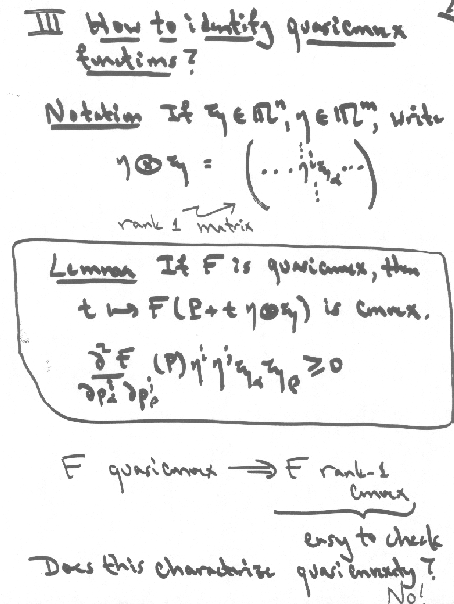 III How to identify quasiconvex
functions?
Notation If ξ ∈ ℝⁿ, η ∈ ℝᵐ, write
η ⊗ ξ = ( ... ηⁱ ξ_α ... )
rank 1 matrix
Lemma If F is quasiconvex, then
t ↦ F(P + t η⊗ξ) is convex.
∂²F/∂pⁱ_α ∂pʲ_β (P) ηⁱ ηʲ ξ_α ξ_β ≥ 0
F quasiconvex ⟹ F rank-1
convex
easy to check
Does this characterize quasiconvexity?
No!